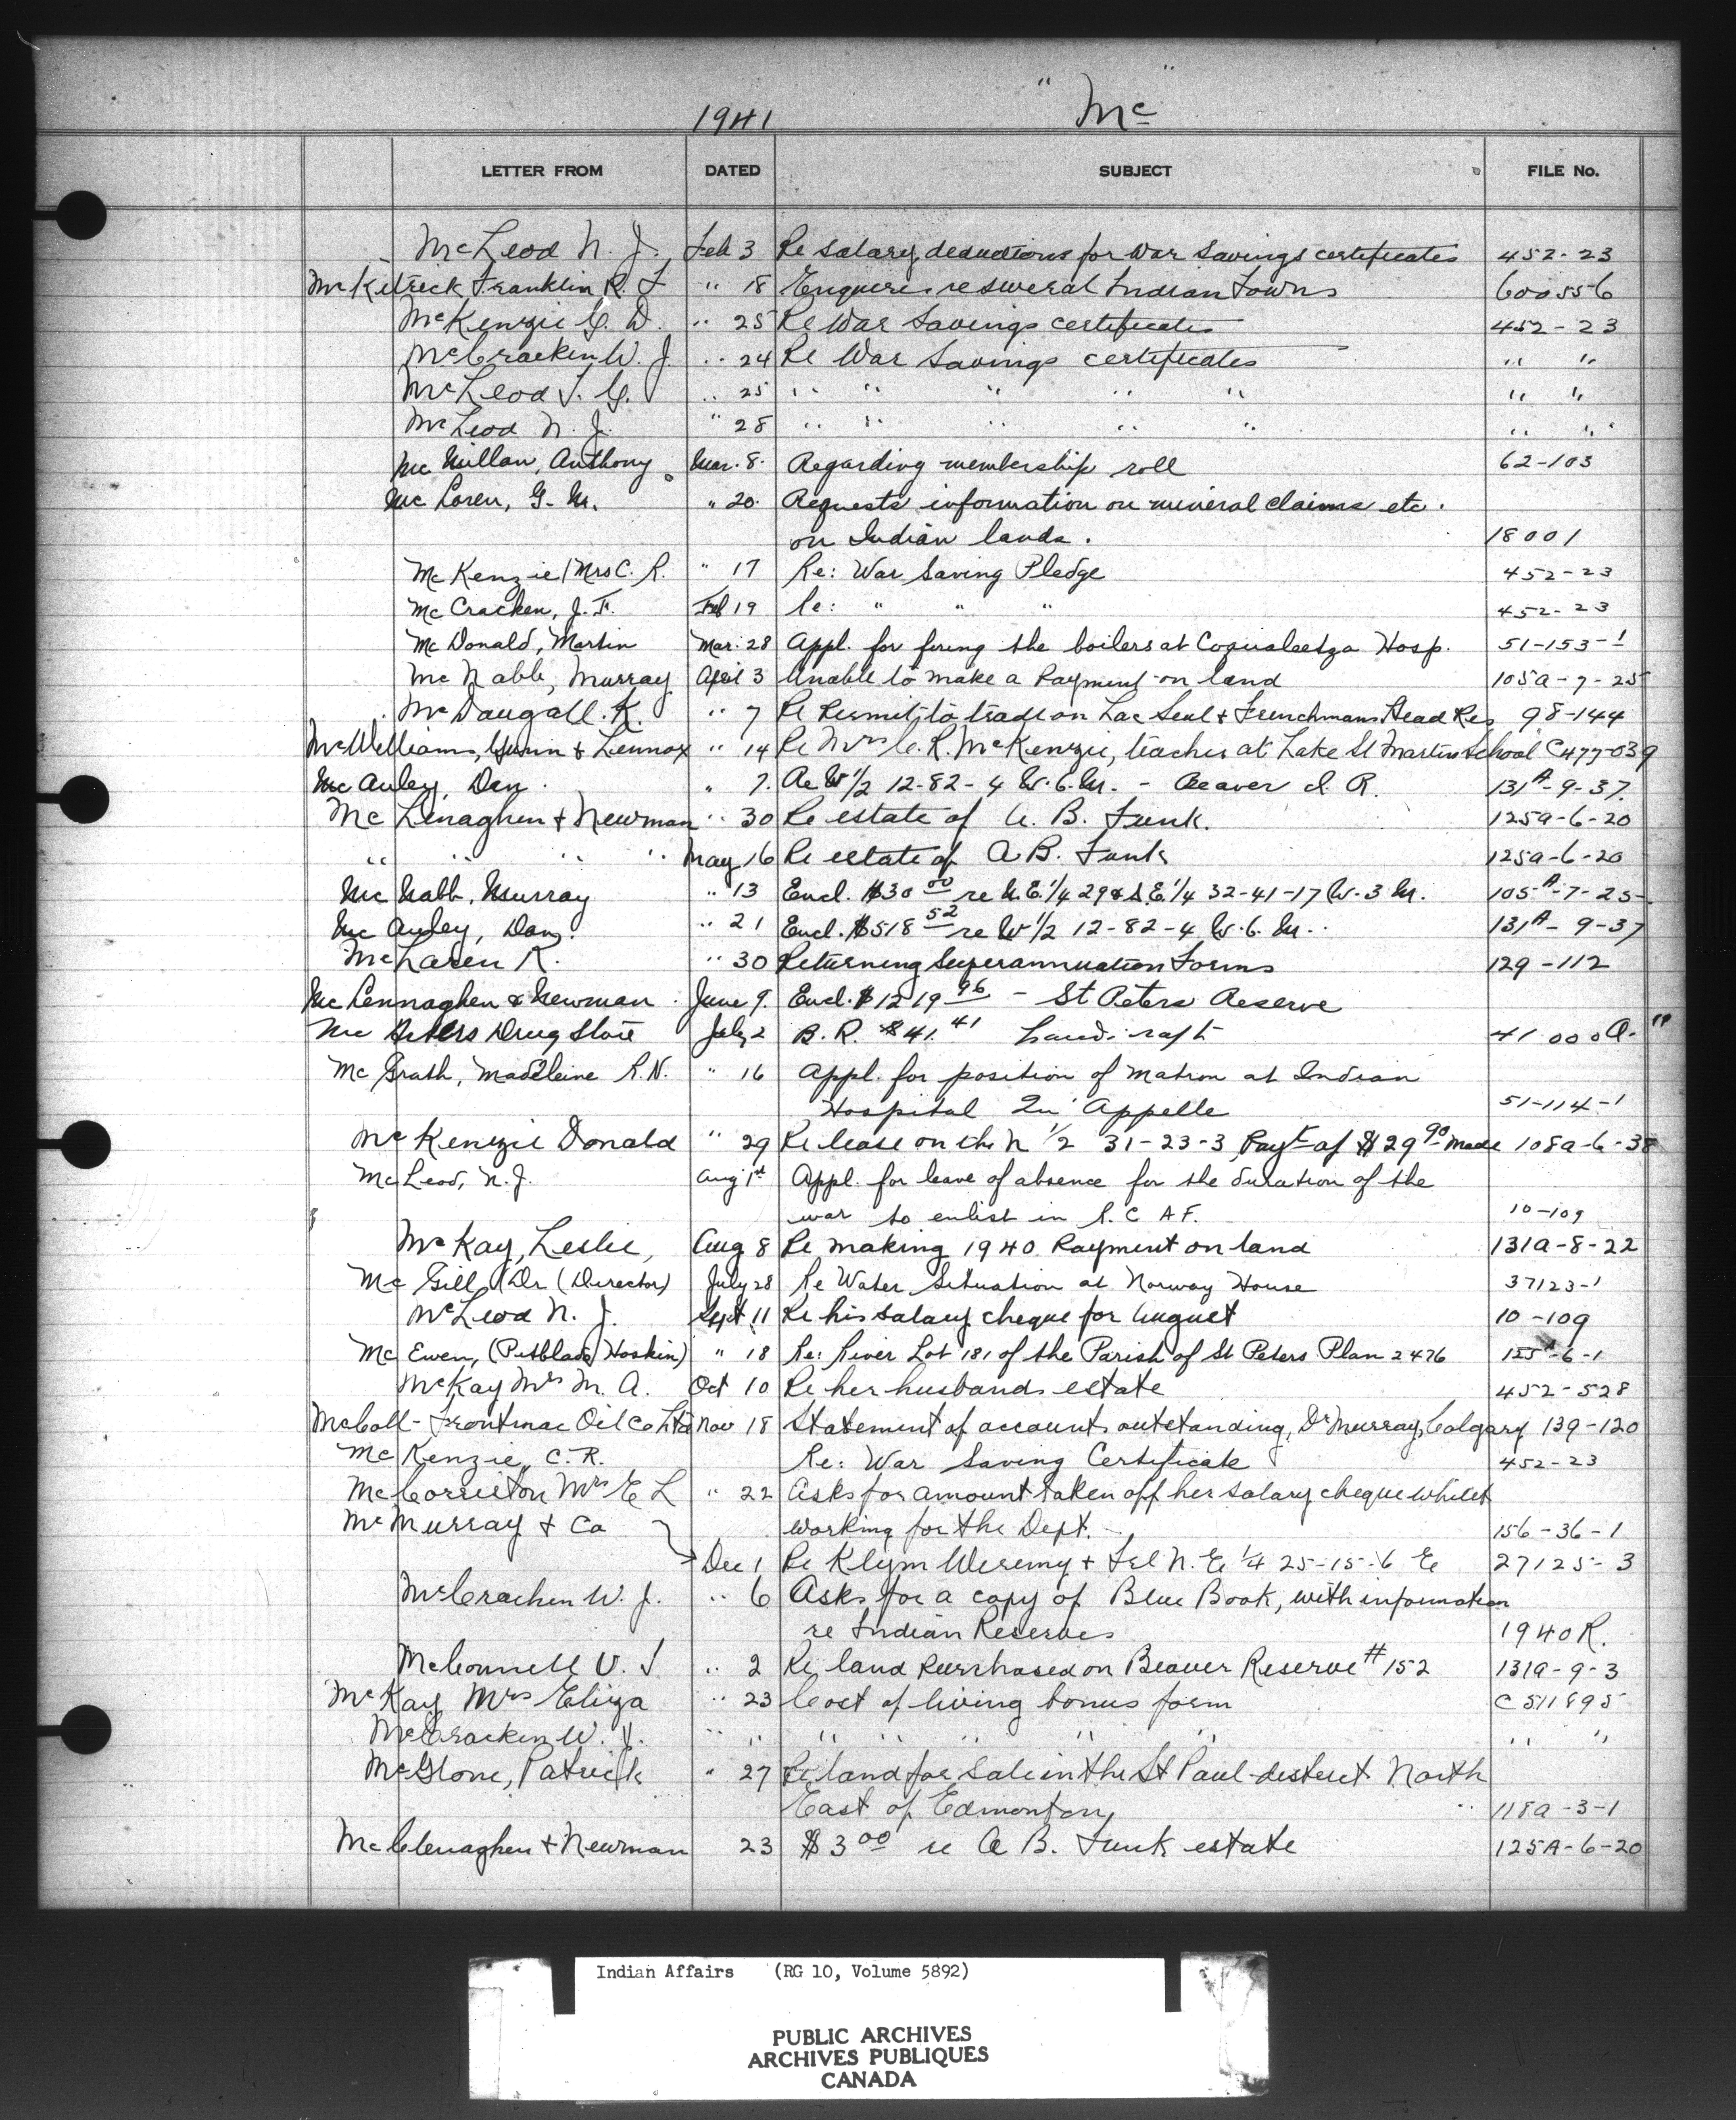 1941 "Mc"
LETTER FROM DATED SUBJECT FILE No.
McLeod N. J. Feb 3 Re salary deductions for War Savings certificates 452-23
McKitrick Franklin R. F " 18 Enquires re several Indian Towns 600556
McKenzie G. D. " 25 Re War Savings certificates 452-23
McCracken W. J. " 24 Re War Savings certificates " "
McLeod J. G. " 25 " " " " " " "
McLeod N. J. " 28 " " " " " " "
McMillan, Anthony Mar. 8. Regarding membership roll 62-103
Mc Loren, G. M. " 20. Requests information on mineral claims etc.
on Indian lands. 18001
McKenzie (Mrs C. R. " 17 Re: War Saving Pledge 452-23
McCracken, J. F. Feb 19 Re: " " " 452-23
McDonald, Martin Mar. 28 Appl. for firing the boilers at Coqualeetza Hosp. 51-153-1
McNabb, Murray April 3 Unable to make a Payment on land 105a-7-25
McDougall. K. " 7 Re Permit to trade on Lac Seul & Frenchmans Head Res 98-144
McWilliams, Gunn & Lennox " 14 Re Mrs C. R. McKenzie, teacher at Lake St Martin School C477-039
McAuley, Dan. " 7. Re W 1/2 12-82-4 W. 6. M. - Beaver I. R. 131A-9-37.
McLenaghen & Newman " 30 Re estate of A. B. Funk. 125a-6-20
" " " " May 16 Re estate of A B. Funk 125a-6-20
McNabb, Murray " 13 Encl. $30 00 re N. E. 1/4 29 & S. E. 1/4 32-41-17 W. 3 M. 105-A-7-25-
McAuley, Dan. " 21 Encl. $518 52 re W 1/2 12-82-4 W. 6. M. 131A-9-37
McLaren R. " 30 Returning Superannuation Forms 129-112
McLennaghen & Newman. June 9. Encl. $1219 96 - St Peters Reserve
Mc Peters Drug Store July 2 B. R. $41. 41 Handicraft 41000A. "
McGrath, Madeleine R.N. " 16 Appl. for position of Matron at Indian
Hospital Qu'Appelle 51-114-1
McKenzie Donald " 29 Re lease on the N 1/2 31-23-3 Payt of $29 90 made 108a-6-38
McLeod, N. J. Aug 1st Appl. for leave of absence for the duration of the
war to enlist in R. C A F. 10-109
McKay, Leslie, Aug 8 Re making 1940 Payment on land 131a-8-22
McGill, Dr (Director) July 28 Re Water Situation at Norway House 37123-1
McLeod N. J. Sept 11 Re his salary cheque for August 10-109
McEwen, (Pitblado Hoskin) " 18 Re: River Lot 181 of the Parish of St Peters Plan 2476 125A-6-1
McKay Mrs M. A. Oct 10 Re her husbands estate 452-528
McColl-Frontinac Oil Co Ltd Nov 18 Statement of account outstanding, Dr Murray, Calgary 139-120
McKenzie, C. R. Re: War Saving Certificate 452-23
McCorriston Mrs E L " 22 Asks for amount taken off her salary cheque whilst
McMurray & Co working for the Dept. 156-36-1
Dec 1 Re Klym Weremy & Fel N. E 1/4 25-15-6 E 27125-3
McCracken W. J. " 6 Asks for a copy of Blue Book, with information
re Indian Reserves 1940R.
McConnell V. J " 2 Re land purchased on Beaver Reserve #152 131a-9-3
McKay Mrs Eliza " 23 Cost of living bonus form C 511895
McCracken W. J. " " " " " " " " "
McGlone, Patrick " 27 Re land for sale in the St Paul district North
East of Edmonton 118a-3-1
McClenaghen & Newman 23 $3 00 re A B. Funk estate 125A-6-20
Indian Affairs (RG 10, Volume 5892)
PUBLIC ARCHIVES
ARCHIVES PUBLIQUES
CANADA